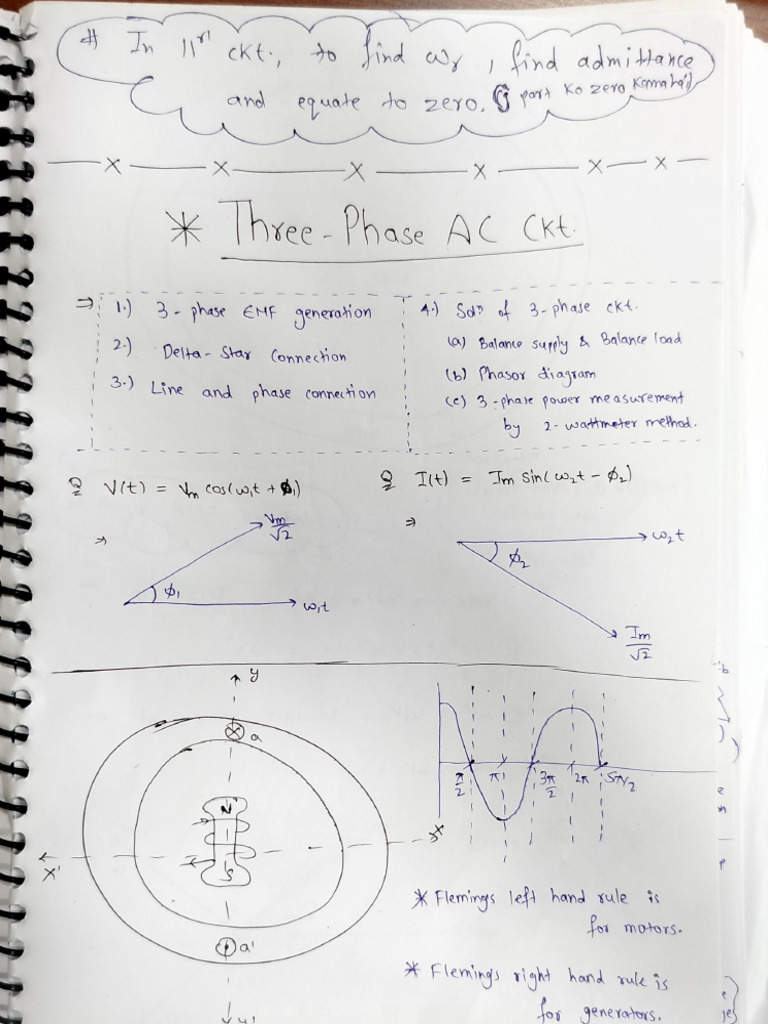 # In 11rl ckt., to find ωr, find admittance
and equate to zero. j part ko zero karna hai
* Three-Phase AC Ckt.
⇒ 1.) 3-phase EMF generation
2.) Delta-Star Connection
3.) Line and phase connection
4.) Soln of 3-phase ckt.
(a) Balance supply & Balance load
(b) Phasor diagram
(c) 3-phase power measurement
by 2-wattmeter method.
Q V(t) = Vm cos(ω1t + ϕ1)
⇒
Vm/√2
ϕ1
ω1t
Q I(t) = Im sin(ω2t - ϕ2)
⇒
ω2t
ϕ2
Im/√2
y
a
N
S
X
X'
a'
y'
π/2 π 3π/2 2π 5π/2
* Flemings left hand rule is
for motors.
* Flemings right hand rule is
for generators.